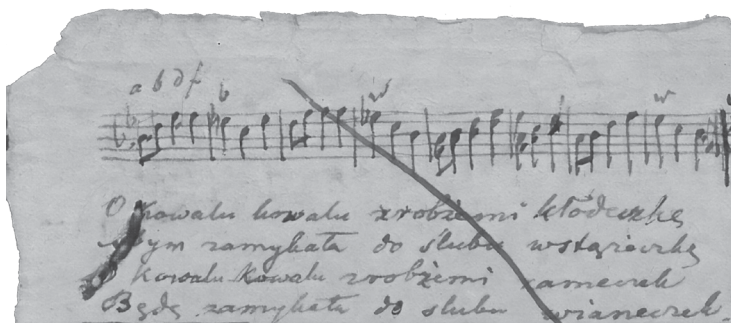 a b d f b
O kowalu kowalu zrobże mi kłódeczkę
bym zamykała do ślubu wstążeczkę
kowalu kowalu zrobże mi zameczek
Będę zamykała do ślubu wianeczek